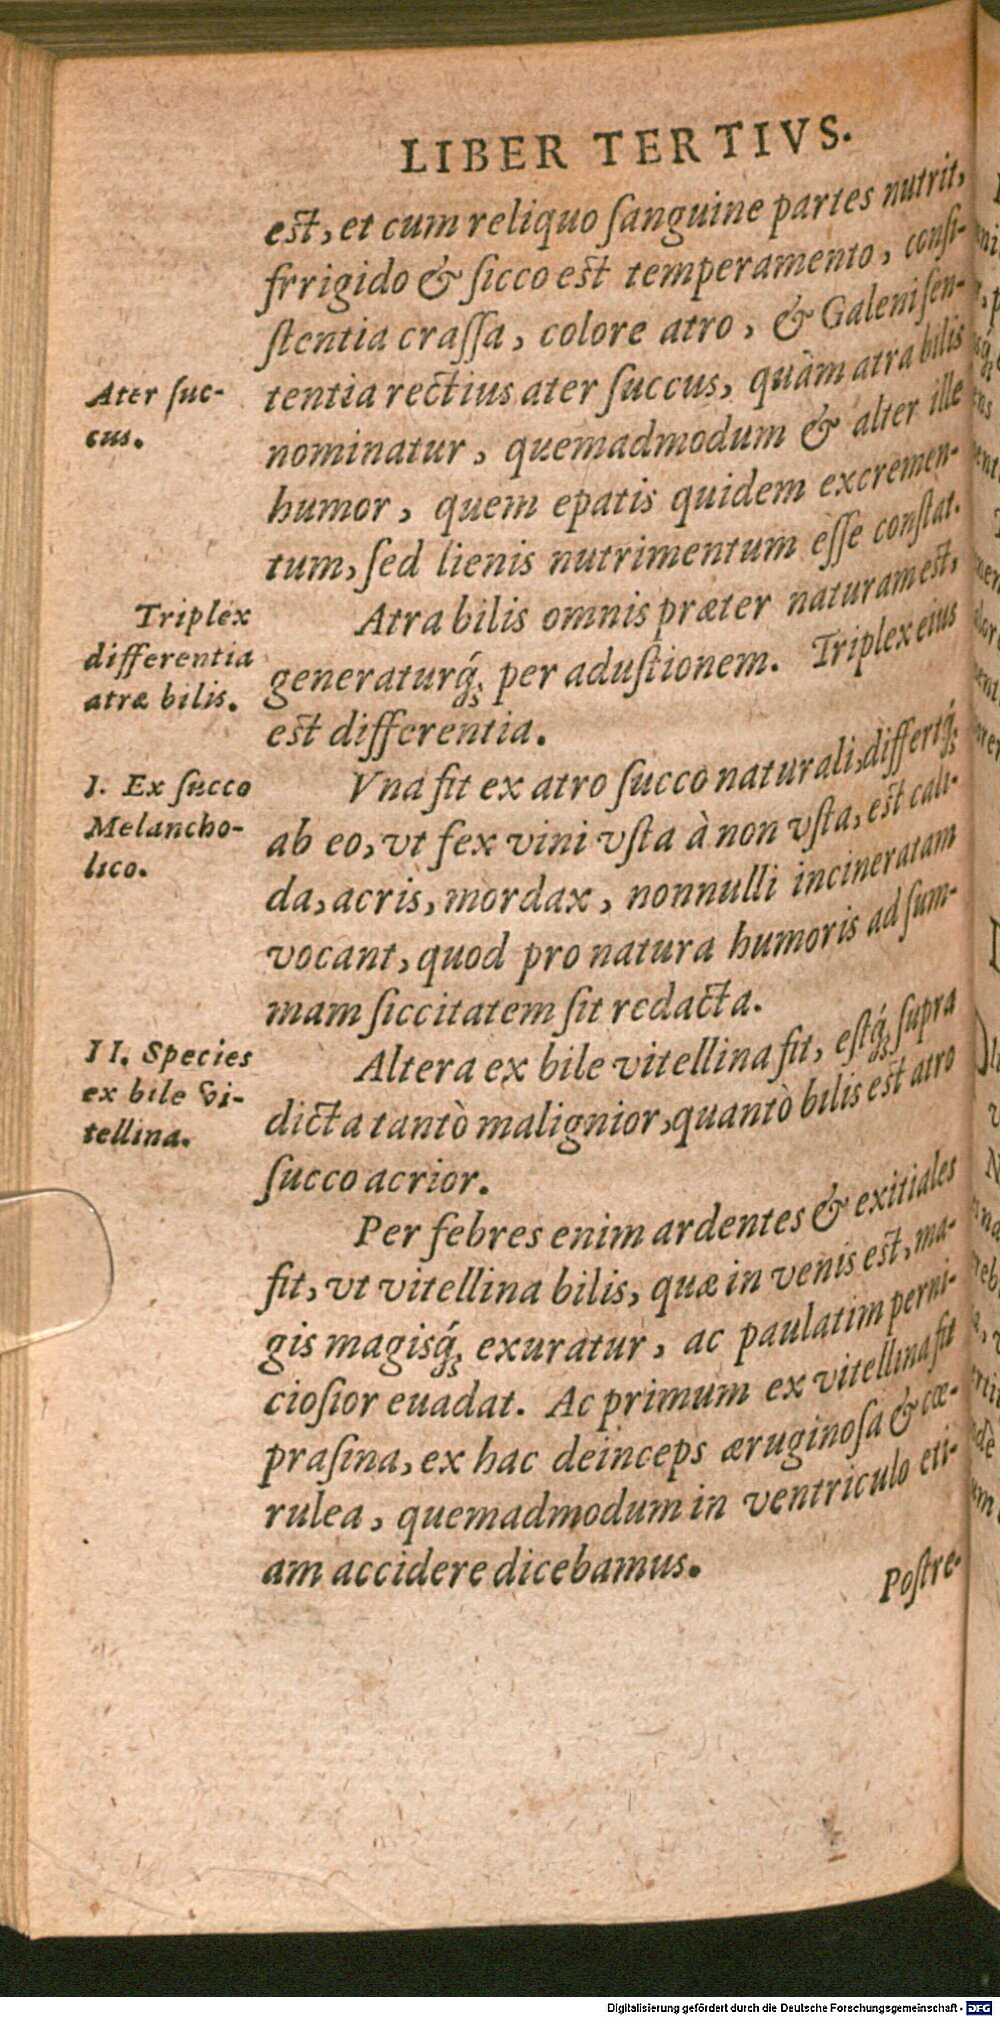 LIBER TERTIVS.
est, et cum reliquo ſanguine partes nutrit,
frrigido & ſicco est temperamento, conſi-
ſtentia craſſa, colore atro, & Galeni ſen-
tentia rectius ater ſuccus, quàm atra bilis
nominatur, quemadmodum & alter ille
humor, quem epatis quidem excremen-
tum, ſed lienis nutrimentum eſſe conſtat.
Ater ſuc-
cus.
Atra bilis omnis præter naturam est,
generaturq́; per aduſtionem. Triplex eius
est differentia.
Triplex
differentia
atræ bilis.
Vna fit ex atro ſucco naturali, differtq́;
ab eo, vt fex vini vſta à non vſta, est cali-
da, acris, mordax, nonnulli incineratam
vocant, quod pro natura humoris ad ſum-
mam ſiccitatem ſit redacta.
I. Ex ſucco
Melancho-
lico.
Altera ex bile vitellina fit, eſtq́; ſupra
dicta tantò malignior, quantò bilis est atro
ſucco acrior.
II. Species
ex bile vi-
tellina.
Per febres enim ardentes & exitiales
fit, vt vitellina bilis, quæ in venis est, ma-
gis magisq́; exuratur, ac paulatim perni-
cioſior euadat. Ac primum ex vitellina fit
praſina, ex hac deinceps æruginoſa & cæ-
rulea, quemadmodum in ventriculo eti-
am accidere dicebamus.
Poſtre-
Digitalisierung gefördert durch die Deutsche Forschungsgemeinschaft - DFG